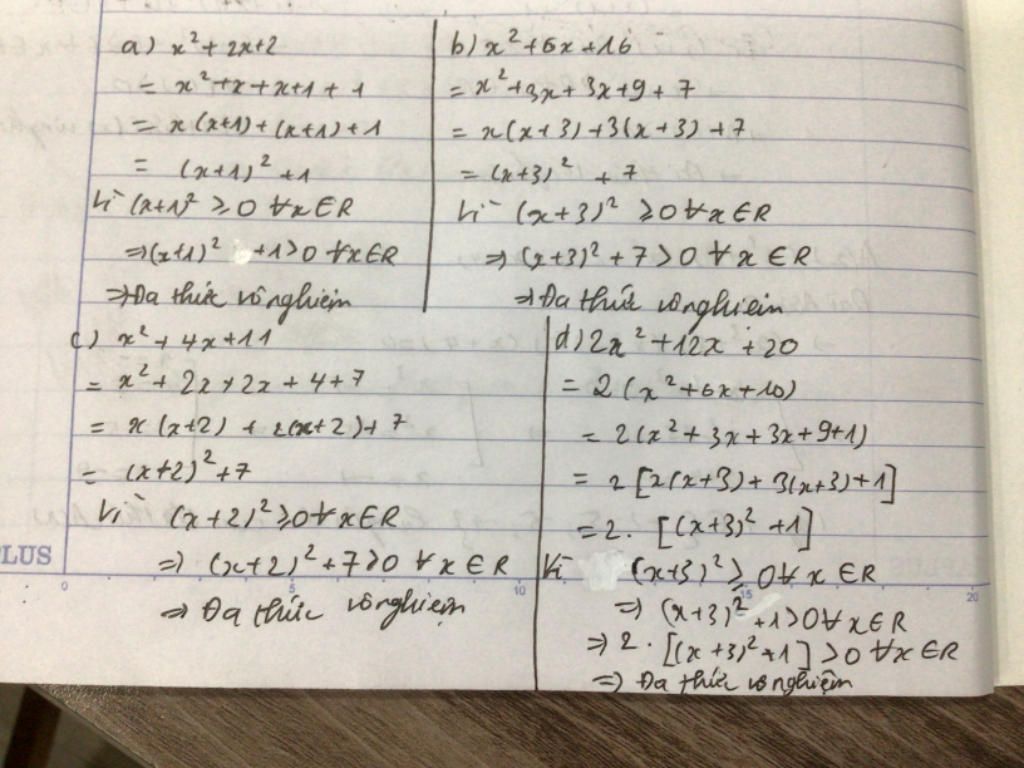 a) x² + 2x + 2
= x² + x + x + 1 + 1
= x(x+1) + (x+1) + 1
= (x+1)² + 1
Vì (x+1)² ≥ 0 ∀x∈R
⇒ (x+1)² + 1 > 0 ∀x∈R
⇒ Đa thức vô nghiệm
b) x² + 6x + 16
= x² + 3x + 3x + 9 + 7
= x(x+3) + 3(x+3) + 7
= (x+3)² + 7
Vì (x+3)² ≥ 0 ∀x∈R
⇒ (x+3)² + 7 > 0 ∀x∈R
⇒ Đa thức vô nghiệm
c) x² + 4x + 11
= x² + 2x + 2x + 4 + 7
= x(x+2) + 2(x+2) + 7
= (x+2)² + 7
Vì (x+2)² ≥ 0 ∀x∈R
⇒ (x+2)² + 7 > 0 ∀x∈R
⇒ Đa thức vô nghiệm
d) 2x² + 12x + 20
= 2(x² + 6x + 10)
= 2(x² + 3x + 3x + 9 + 1)
= 2[x(x+3) + 3(x+3) + 1]
= 2.[(x+3)² + 1]
Vì (x+3)² ≥ 0 ∀x∈R
⇒ (x+3)² + 1 > 0 ∀x∈R
⇒ 2.[(x+3)² + 1] > 0 ∀x∈R
⇒ Đa thức vô nghiệm
PLUS
0 5 10 15 20